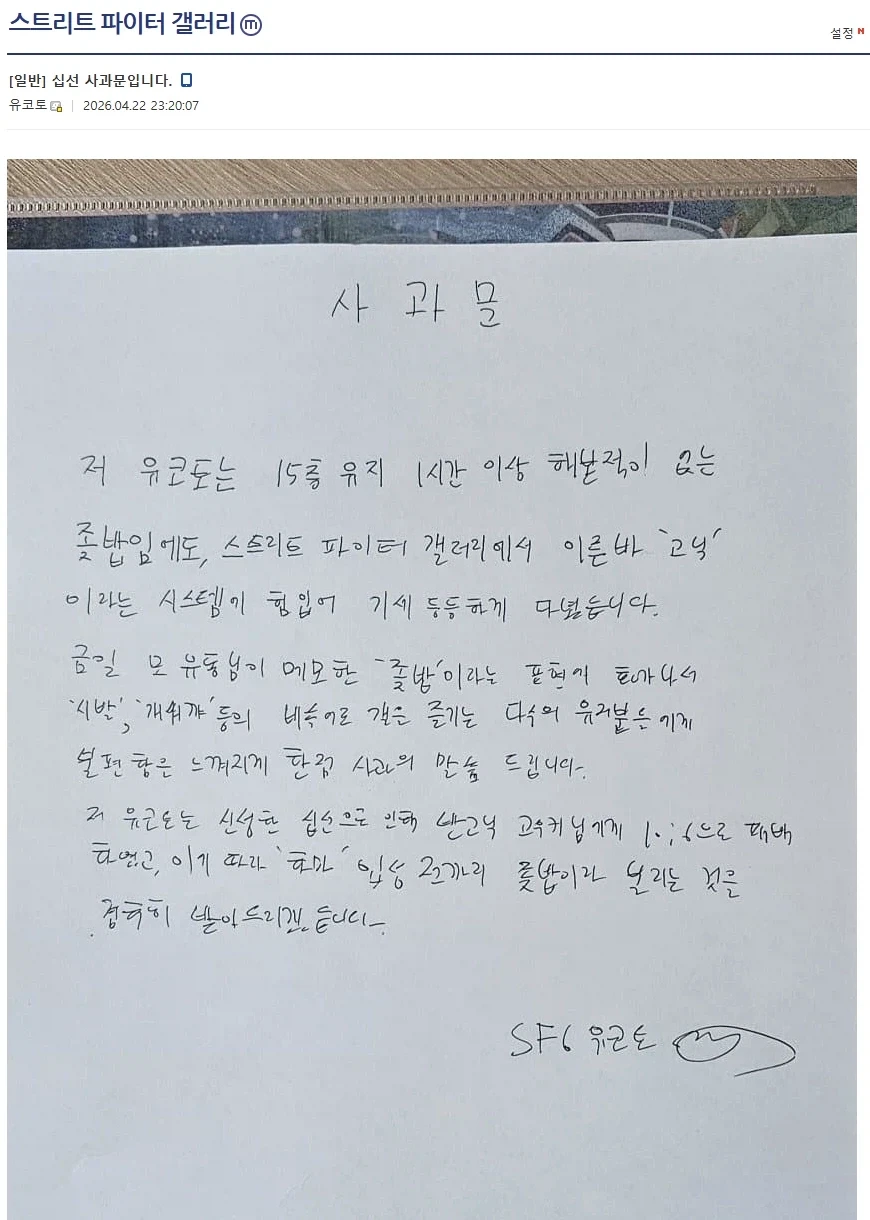 스트리트 파이터 갤러리 ⓜ
설정 N
[일반] 십선 사과문입니다.
유코토 2026.04.22 23:20:07
사 과 문
저 유코토는 15층 유지 1시간 이상 해본적이 없는
좆밥임에도, 스트리트 파이터 갤러리에서 이른바 '고닉'
이라는 시스템에 힘입어 기세 등등하게 다녔습니다.
금일 모 유동님이 메모한 '좆밥'이라는 표현에 화가나서
'시발', 등의 비속어로 갤을 즐기는 다수의 유저분들에게
불편함은 느껴지게 한점 사과의 말씀 드립니다.
저 유코토는 신성한 십선으로 인해 받고닉 님에게 10:6으로 패배
하였고, 이에 따라 '하마' 입성 전까지 좆밥이라 불리는 것을
겸허히 받아드리겠습니다.
SF6 유코토